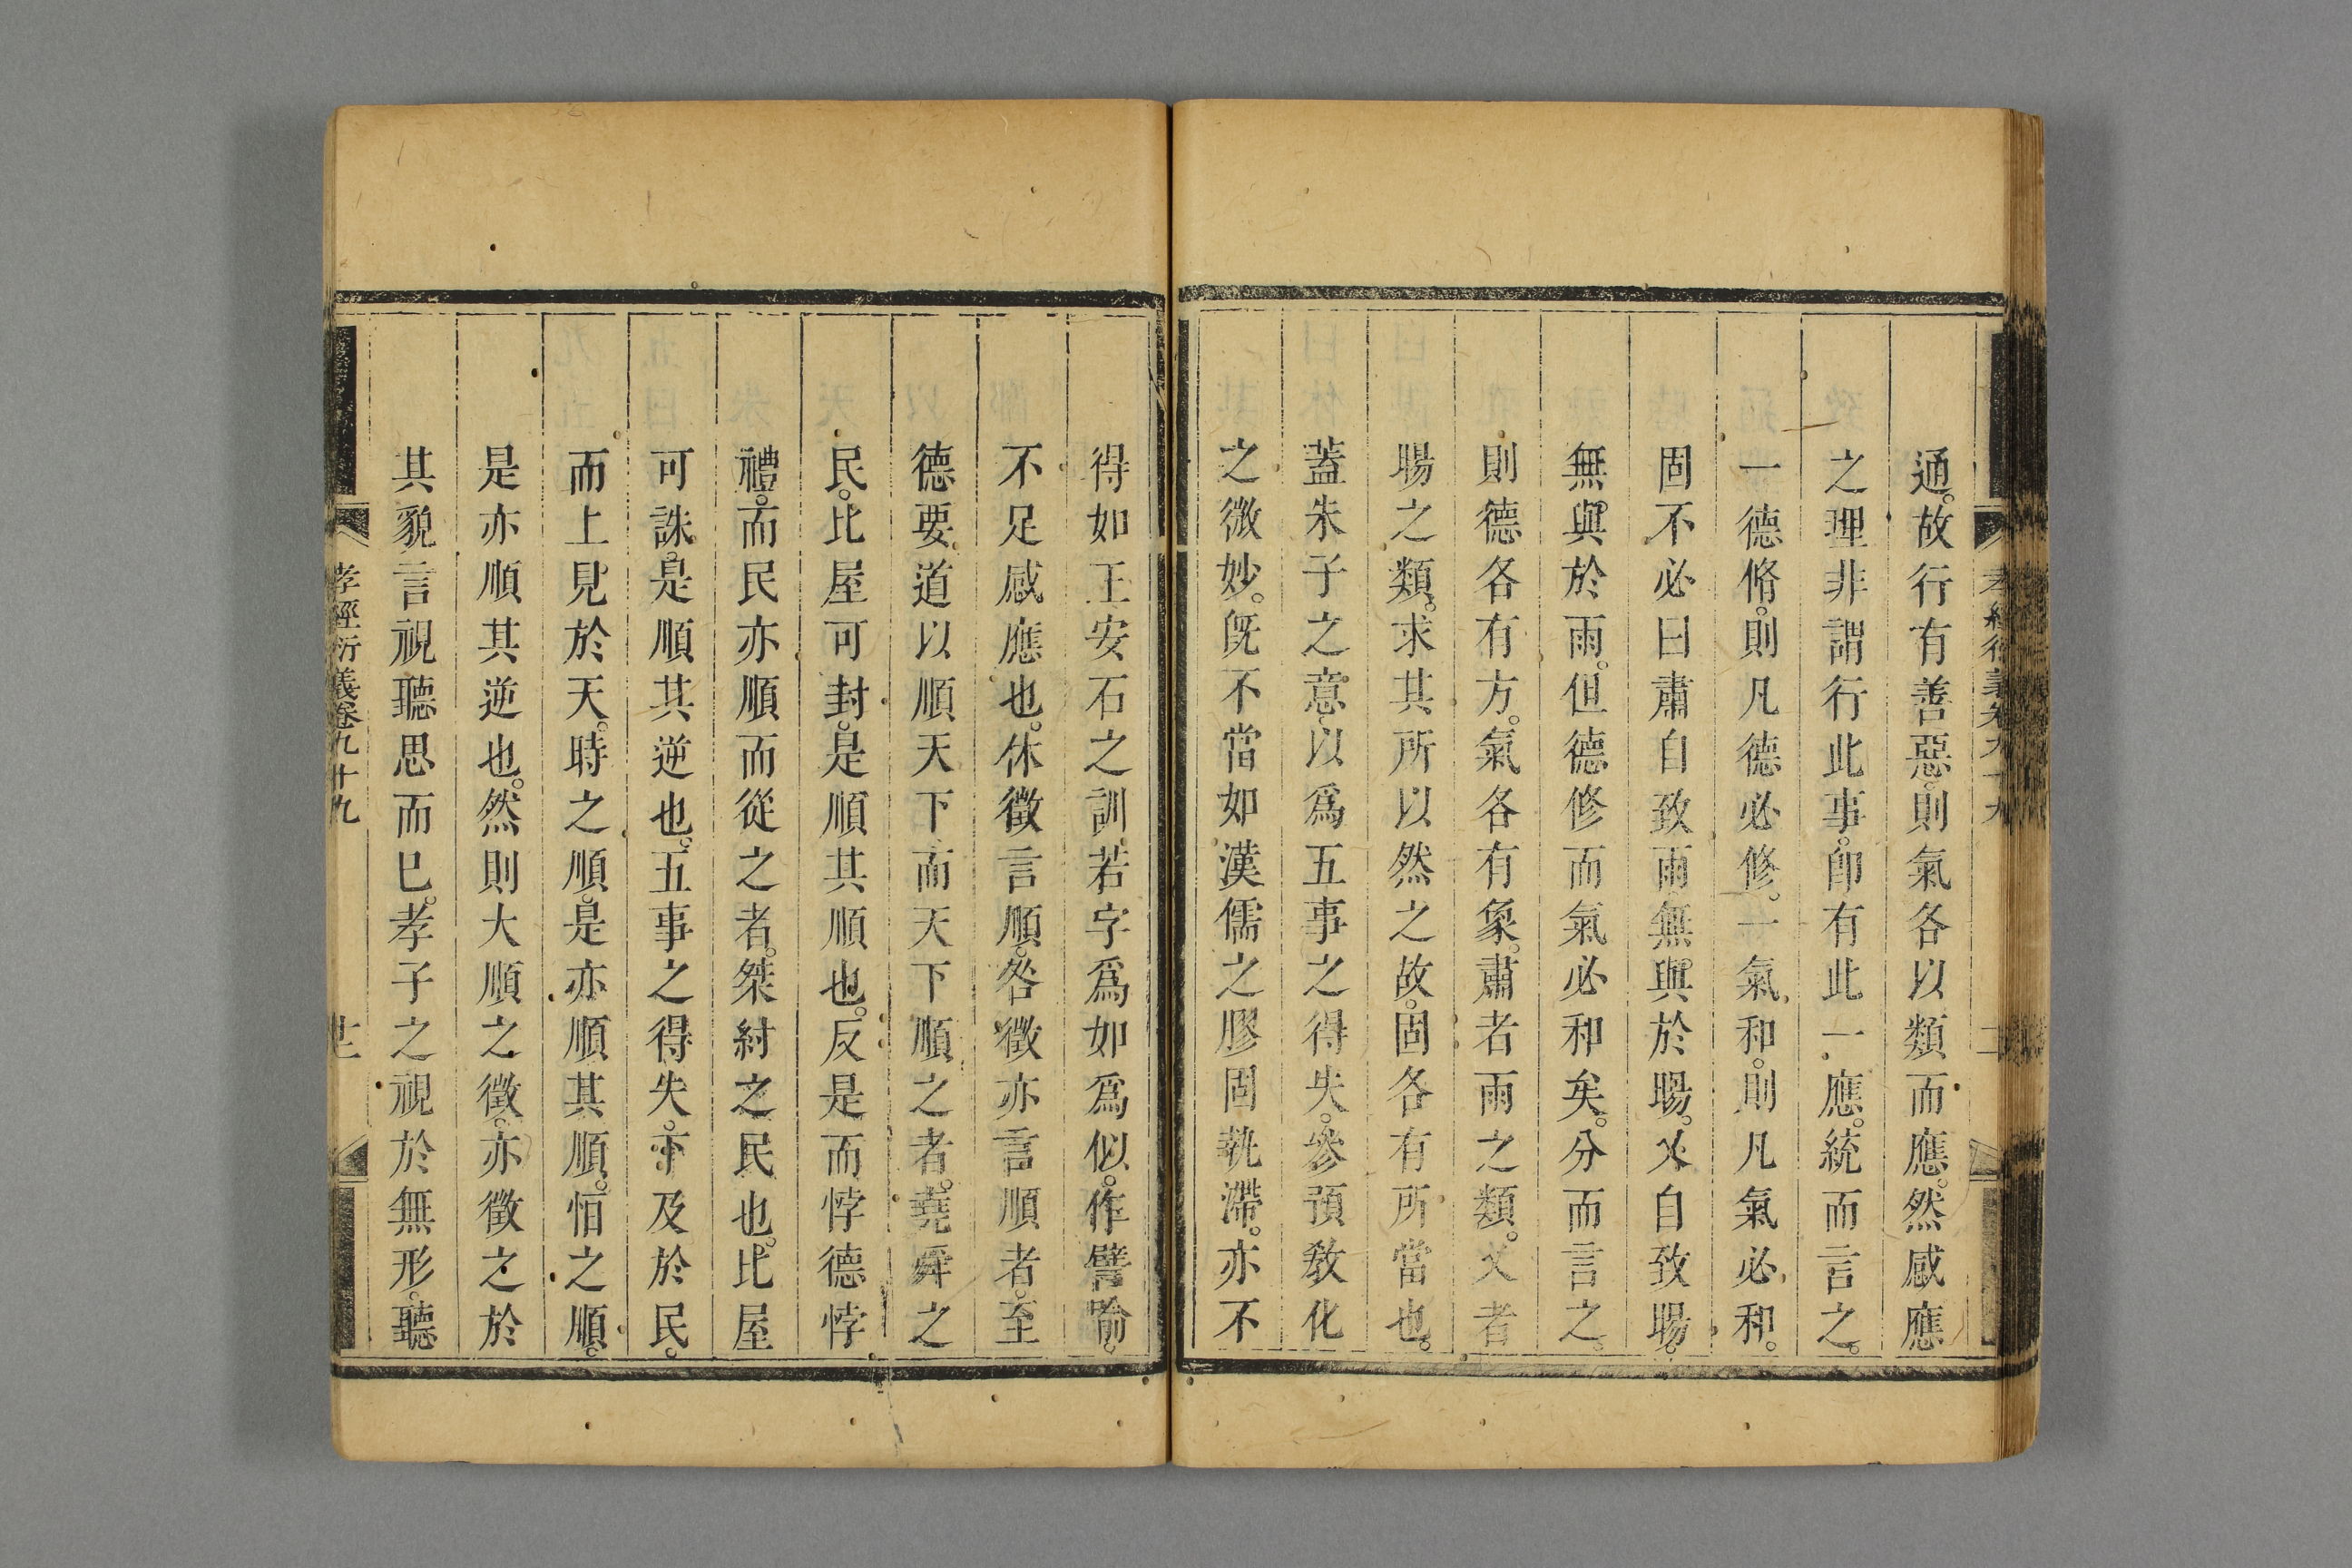 通。故行有善惡。則氣各以類而應。然感應
之理非謂行此事。卽有此一應。統而言之。
一德脩。則凡德必修。一氣和。則凡氣必和。
固不必曰肅自致雨。無與於暘。乂自致暘。
無與於雨。但德修而氣必和矣。分而言之。
則德各有方。氣各有象。肅者雨之類。乂者
暘之類。求其所以然之故。固各有所當也。
蓋朱子之意。以爲五事之得失。參預教化
之微妙。旣不當如漢儒之膠固執滯。亦不
得如王安石之訓若字爲如爲似。作譬喻。
不足感應也。休徵言順。咎徵亦言順者。至
德要道以順天下。而天下順之者。堯舜之
民。比屋可封。是順其順也。反是而悖德悖
禮。而民亦順而從之者。桀紂之民也。比屋
可誅。是順其逆也。五事之得失。下及於民。
而上見於天。時之順。是亦順其順。恒之順。
是亦順其逆也。然則大順之徵。亦徵之於
其貌言視聽思而已。孝子之視於無形。聽
孝經衍義卷九十九